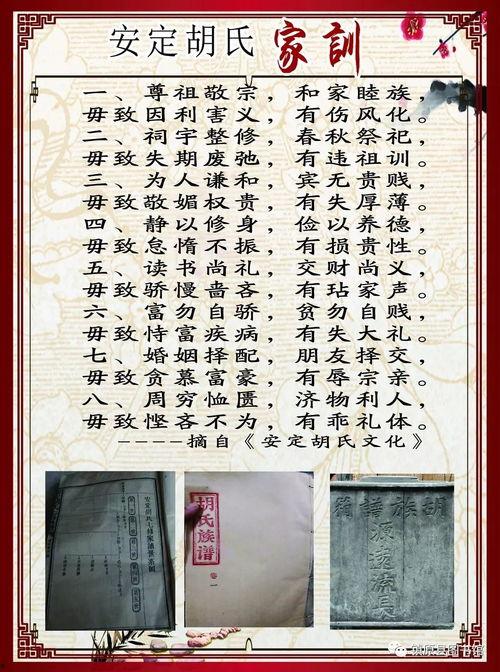 安定胡氏 家訓
一、尊祖敬宗，和家睦族，
毋致因利害义，有伤风化。
二、祠宇整修，春秋祭祀，
毋致失期废弛，有违祖训。
三、为人谦和，宾无贵贱，
毋致敬媚权贵，有失厚薄。
四、静以修身，俭以养德，
毋致怠惰不振，有损贵性。
五、读书尚礼，交财尚义，
毋致骄慢啬吝，有玷家声。
六、富勿自骄，贫勿自贱，
毋致恃富疾病，有失大礼。
七、婚姻择配，朋友择交，
毋致贪慕富豪，有辱宗亲。
八、周穷恤匮，济物利人，
毋致悭吝不为，有乖礼体。
----摘自《安定胡氏文化》
安定胡氏七修家谱世系图
胡氏族谱
卷一
箱譜族胡
源遠流長